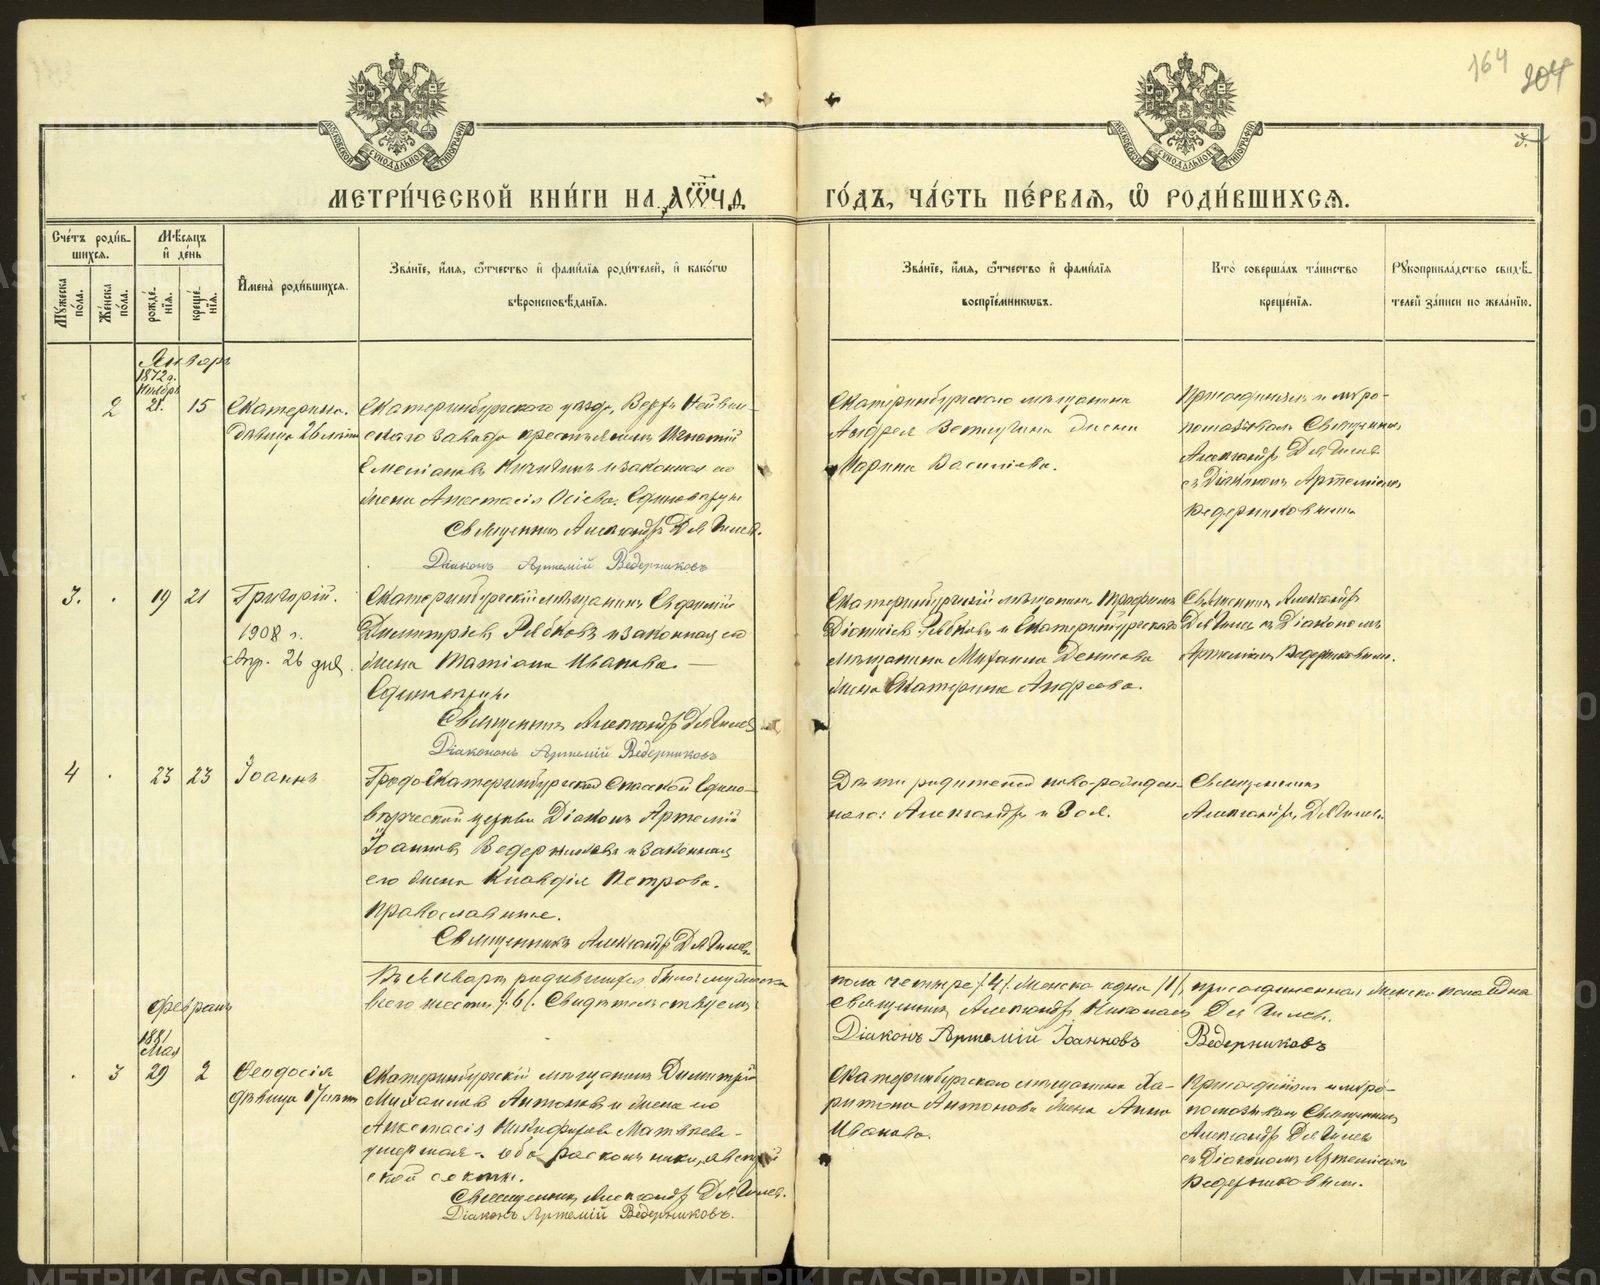 164 204
3.
МОСКОВСКОЙ СУНОДАЛЬНОЙ ТИПОГРАФІИ
МОСКОВСКОЙ СУНОДАЛЬНОЙ ТИПОГРАФІИ
МЕТРИ́ЧЕСКОЙ КНИ́ГИ НА ГО́ДЪ, ЧА́СТЬ ПЕ́РВАЯ, Ѡ РОДИ́ВШИХСЯ.
Сче́тъ роди́в-
шихся.
Мѣ́сяцъ
и҆ де́нь
Мꙋ́жеска по́ла.
Же́нска по́ла.
рожде́-
нія.
креще́-
нія.
И҆мена̀ роди́вшихся.
Зва́ніе, и҆́мя, ѻ҆́тчество и҆ фами́лія роди́телей, и҆ како́гѡ
вѣроисповѣ́данія.
Зва́ніе, и҆́мя, ѻ҆́тчество и҆ фами́лія
воспріе́мникѡвъ.
Кто̀ соверша́лъ та́инство
креще́нія.
Рꙋкоприкла́дство свидѣ́-
телей за́писи по жела́нію.
Январь
1872 г.
Ноябрь
2 21. 15 Екатерина.
дѣвица 26 лѣтъ
Екатеринбургского уезда, Верхъ Нейвин-
скаго завода крестьянинъ Игнатій
Емеліановъ Кичигинъ и законная его
жена Анастасія Осіева. Единоверцы
Священникъ Александръ Дягилевъ.
Діаконъ Артемій Ведерниковъ
Екатеринбургского мѣщанина
Андрея Ветлугина жена
Марина Василіева.
Присоединялъ и муро-
помазывалъ Священникъ
Александръ Дягилевъ
съ Діакономъ Артеміемъ
Ведерниковымъ
3. . 19 21 Григорій.
1908 г.
апр. 26 дня.
Екатеринбургскій мѣщанинъ Евфимій
Димитріевъ Рябковъ и законная его
жена Татіана Иванова. —
Единоверцы
Священникъ Александръ Дягилевъ
Діаконъ Артемій Ведерниковъ
Екатеринбургскій мѣщанинъ Трофимъ
Діонисіевъ Рябковъ и Екатеринбургскаго
мѣщанина Михаила Денисова
жена Екатерина Андреева.
Священникъ Александръ
Дягилевъ съ Діакономъ
Артеміемъ Ведерниковымъ.
4 . 23 23 Іоаннъ
Градо-Екатеринбургской Спасской Едино-
вѣрческой церкви Діаконъ Артемій
Іоанновъ Ведерниковъ и законная
его жена Клавдія Петрова.
Православные.
Священникъ Александръ Дягилевъ
Дѣти родителей новорожден-
наго: Александръ и Зоя.
Священникъ
Александръ Дягилевъ
Въ Январѣ родившихся было: мужеска пола четыре /4/. Женска одна /1/, присоединенная женска пола одна
Всего шесть /6/. Свидѣтельствуемъ: Священникъ Александръ Николаевъ Дягилевъ.
Діаконъ Артемій Іоанновъ Ведерниковъ
Февраль
1881
Мая
. 3 29 2 Феодосія
дѣвица 17 лѣтъ
Екатеринбургскій мѣщанинъ Димитрій
Михаиловъ Антоновъ и жена его
Анастасія Никифорова Матвѣева -
умершая - оба раскольники, австрій
ской секты.
Священникъ Александръ Дягилевъ.
Діаконъ Артемій Ведерниковъ.
Екатеринбургскаго мѣщанина Ха-
ритона Антонова жена Анна
Иванова.
Присоединялъ и муро-
помазывалъ Священникъ
Александръ Дягилевъ
съ Діакономъ Артеміемъ
Ведерниковымъ.
METRIKI.GASO-URAL.RU